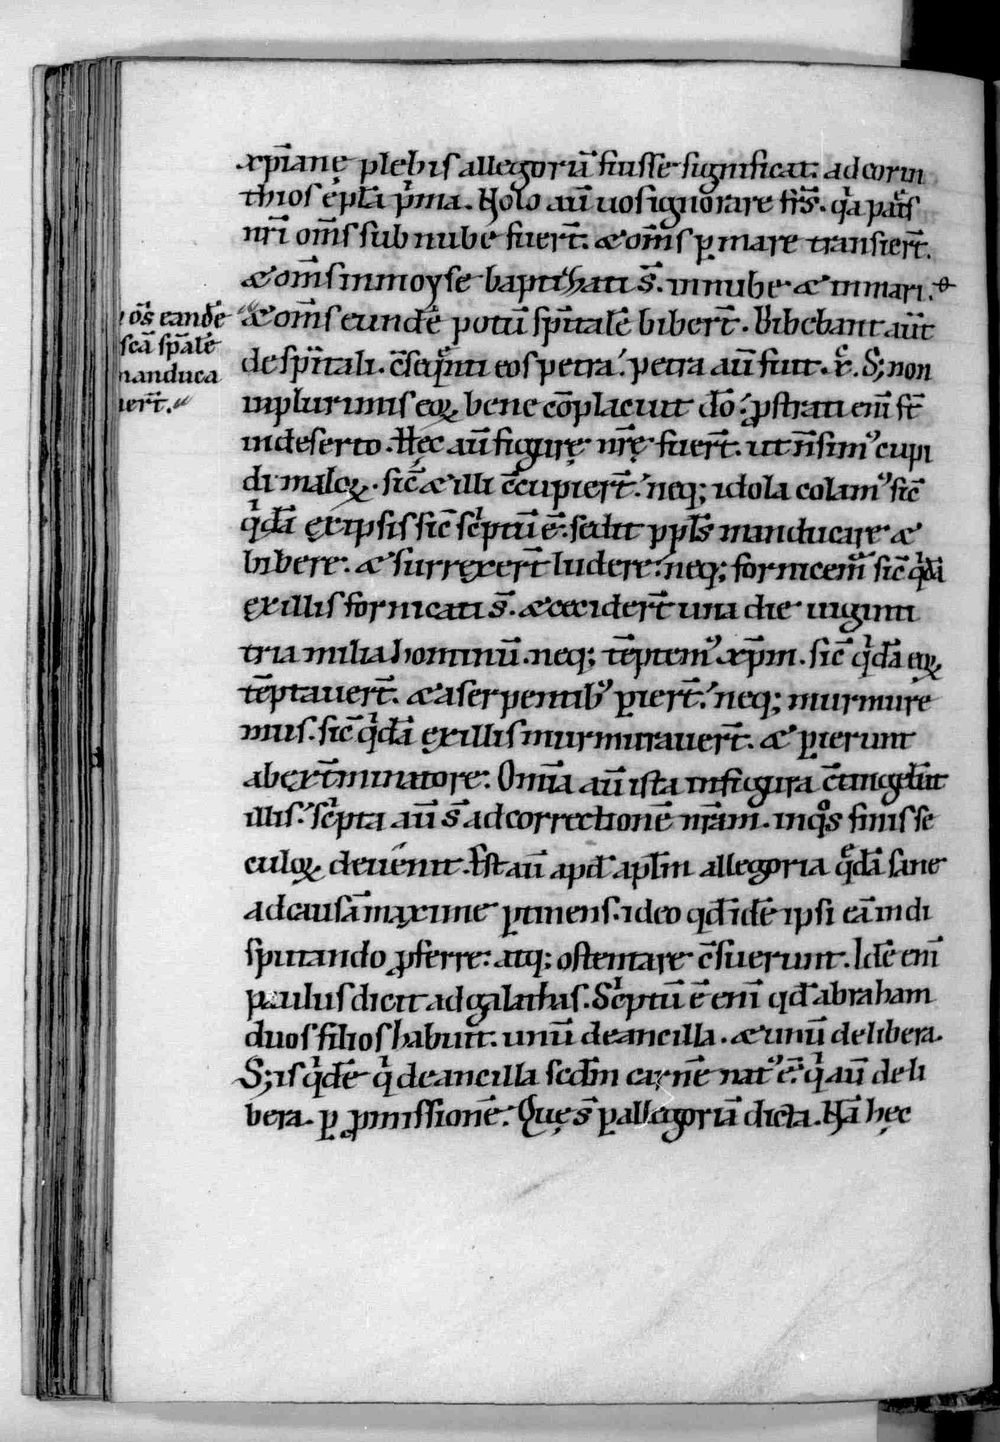 xp̄ianę plebis allegoriā fuisse significat. ad corin
thios ep̄la p̄ma. Nolo aū uos ignorare frs̄. qa patres
nr̄i om̄s sub nube fuer̄t. & om̄s p mare transier̄t.
& om̄s in moyse baptizati s̄. in nube & in mari.
& om̄s eundē potū sp̄italē biber̄t. Bibebant aūt
de sp̄itali. c̄seq̄nti eos petra. petra aū fuit. xc̄. S; non
in plurimis eoꝝ bene cōplacuit dō. ꝓstrati enī st̄
in deserto. Hęc aū figurę nr̄ę fuer̄t. ut n̄ sim᾽ cupi
di maloꝝ. sic̄ & illi c̄cupier̄t. neq; idola colam᾽ sic̄
q̄dā ex ipsis sic̄ sc̄ptū ē. sedit ppl̄s manducare &
bibere. & surrexer̄t ludere. neq; fornicem᾽ sic̄ q̄dā
ex illis fornicati s̄. & cecider̄t una die uiginti
tria milia hominū. neq; tēptem᾽ xp̄m. sic̄ q̄dā eoꝝ
tēptauer̄t. & a serpentib᾽ pier̄t. neq; murmure
mus. sic̄ q̄dā ex illis murmurauer̄t. & pierunt
ab ext̄minatore. Om̄ia aū ista in figura c̄tingebāt
illis. sc̄pta aū s̄ ad correctionē nr̄am. in qos finis se
culoꝝ deuenit. Est aū apd̄ apl̄m allegoria q̄dā sane
ad causā maxime ptinens. ideo qd̄ idē ipsi eā in di
sputando ꝓferre. atq; ostentare c̄suerunt. Idē enī
paulus dicit ad galathas. Sc̄ptū ē enī qd̄ abraham
duos filios habuit. unū de ancilla. & unū de libera.
S; is q̄dē q̄ de ancilla scd̄m carnē nat᾽ ē. q̄ aū de li
bera. p ꝓmissionē. Quę s̄ p allegoriā dicta. Nā hęc
os̄ eandē
scā sp̄alē
manduca
uer̄t.